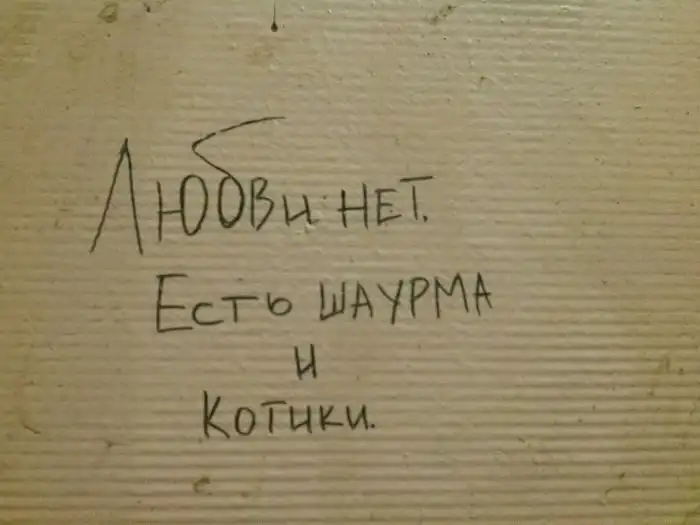 Любви нет.
Есть шаурма
и
котики.